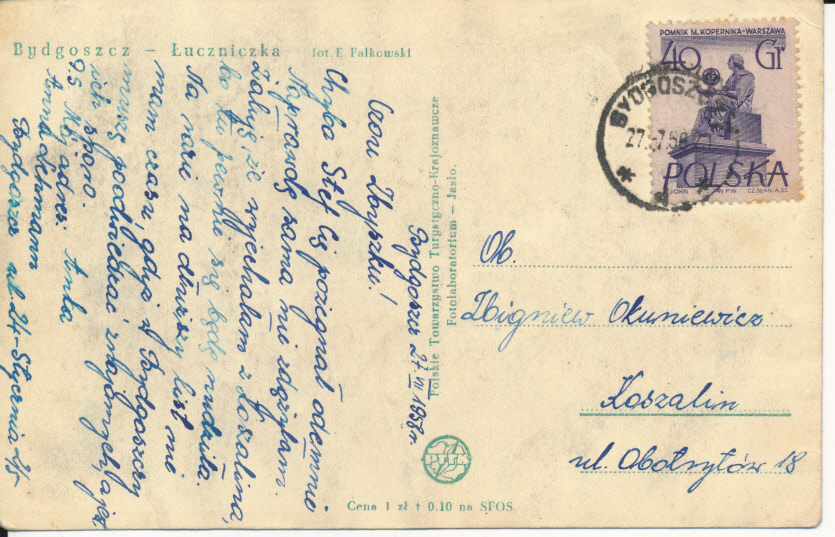 Bydgoszcz – Łuczniczka fot. E. Falkowski
Bydgoszcz 27.VII 1958 r
Czou Zbyszku!
Chyba Stef Cię pożegnał odemnie
Naprawdę sama nie zdążyłam.
Żałuję, że wyjechałam z Koszalina,
bo tu pewnie się będę nudziła.
Na razie na dłuższy list nie
mam czasu, gdyż z Bydgoszczy
muszę poodwiedzać znajomych, a jest
ich sporo.
Anka
P.S. Mój adres:
Anna Lehmann
Bydgoszcz ul. 24-Stycznia
Polskie Towarzystwo Turystyczno-Krajoznawcze
Fotolaboratorium – Jasło.
PTTK
Cena 1 zł + 0.10 na SFOS
POMNIK M. KOPERNIKA-WARSZAWA
40 Gr
POLSKA
CZ.SŁANIA.SC.
BYDGOSZCZ
27.-7.58
Ob.
Zbigniew Okuniewicz
Koszalin
ul. Obotrytów 18